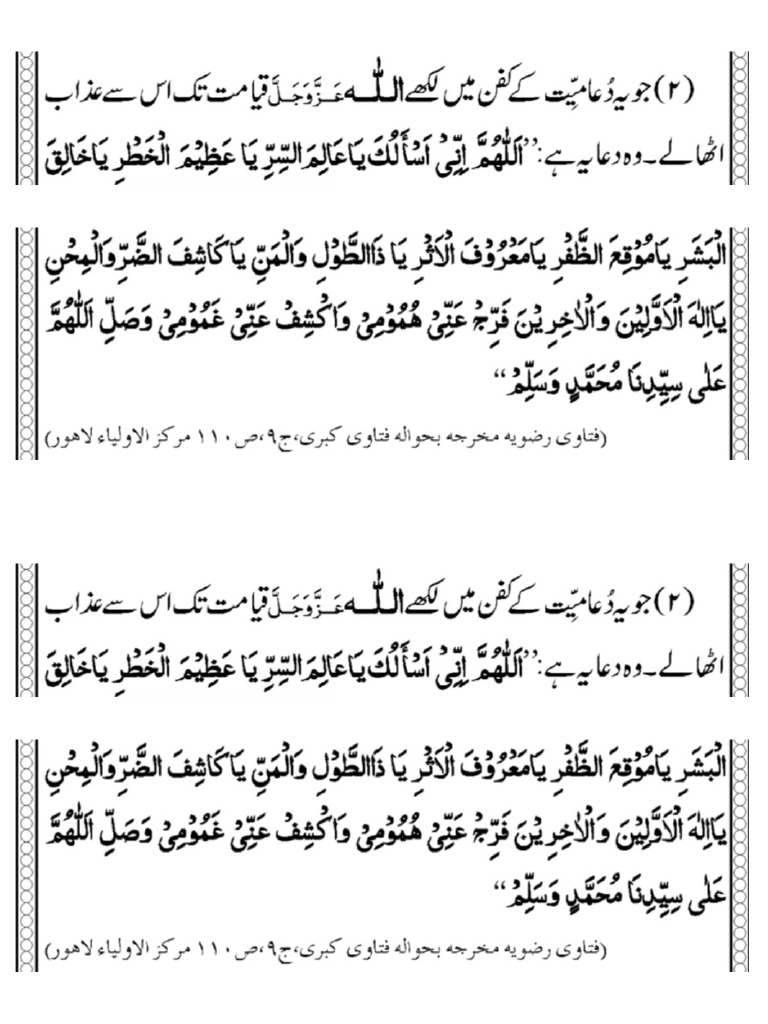 (۲) جو یہ دُعا میِّت کے کفن میں لکھے اللہ عَزَّوَجَلَّ قیامت تک اس سے عذاب
اٹھا لے۔ وہ دعا یہ ہے: ’’اَللّٰهُمَّ اِنِّیْ اَسْأَلُكَ یَا عَالِمَ السِّرِّ یَا عَظِیْمَ الْخَطَرِ یَا خَالِقَ
الْبَشَرِ یَا مُوْقِعَ الظَّفْرِ یَا مَعْرُوْفَ الْاَثْرِ یَا ذَا الطَّوْلِ وَالْمَنِّ یَا کَاشِفَ الضَّرِّ وَالْمِحْنِ
یَا اِلٰهَ الْاَوَّلِیْنَ وَالْاٰخِرِیْنَ فَرِّجْ عَنِّیْ هُمُوْمِیْ وَاکْشِفْ عَنِّیْ غَمُوْمِیْ وَصَلِّ اَللّٰهُمَّ
عَلٰی سَیِّدِنَا مُحَمَّدٍ وَسَلِّمْ‘‘
(فتاوی رضویه مخرجه بحواله فتاوی کبری،ج۹،ص۱۱۰ مرکز الاولیاء لاهور)
(۲) جو یہ دُعا میِّت کے کفن میں لکھے اللہ عَزَّوَجَلَّ قیامت تک اس سے عذاب
اٹھا لے۔ وہ دعا یہ ہے: ’’اَللّٰهُمَّ اِنِّیْ اَسْأَلُكَ یَا عَالِمَ السِّرِّ یَا عَظِیْمَ الْخَطَرِ یَا خَالِقَ
الْبَشَرِ یَا مُوْقِعَ الظَّفْرِ یَا مَعْرُوْفَ الْاَثْرِ یَا ذَا الطَّوْلِ وَالْمَنِّ یَا کَاشِفَ الضَّرِّ وَالْمِحْنِ
یَا اِلٰهَ الْاَوَّلِیْنَ وَالْاٰخِرِیْنَ فَرِّجْ عَنِّیْ هُمُوْمِیْ وَاکْشِفْ عَنِّیْ غَمُوْمِیْ وَصَلِّ اَللّٰهُمَّ
عَلٰی سَیِّدِنَا مُحَمَّدٍ وَسَلِّمْ‘‘
(فتاوی رضویه مخرجه بحواله فتاوی کبری،ج۹،ص۱۱۰ مرکز الاولیاء لاهور)